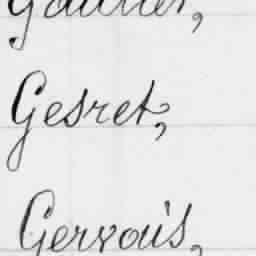 Gautier,
Gesret,
Gervais,